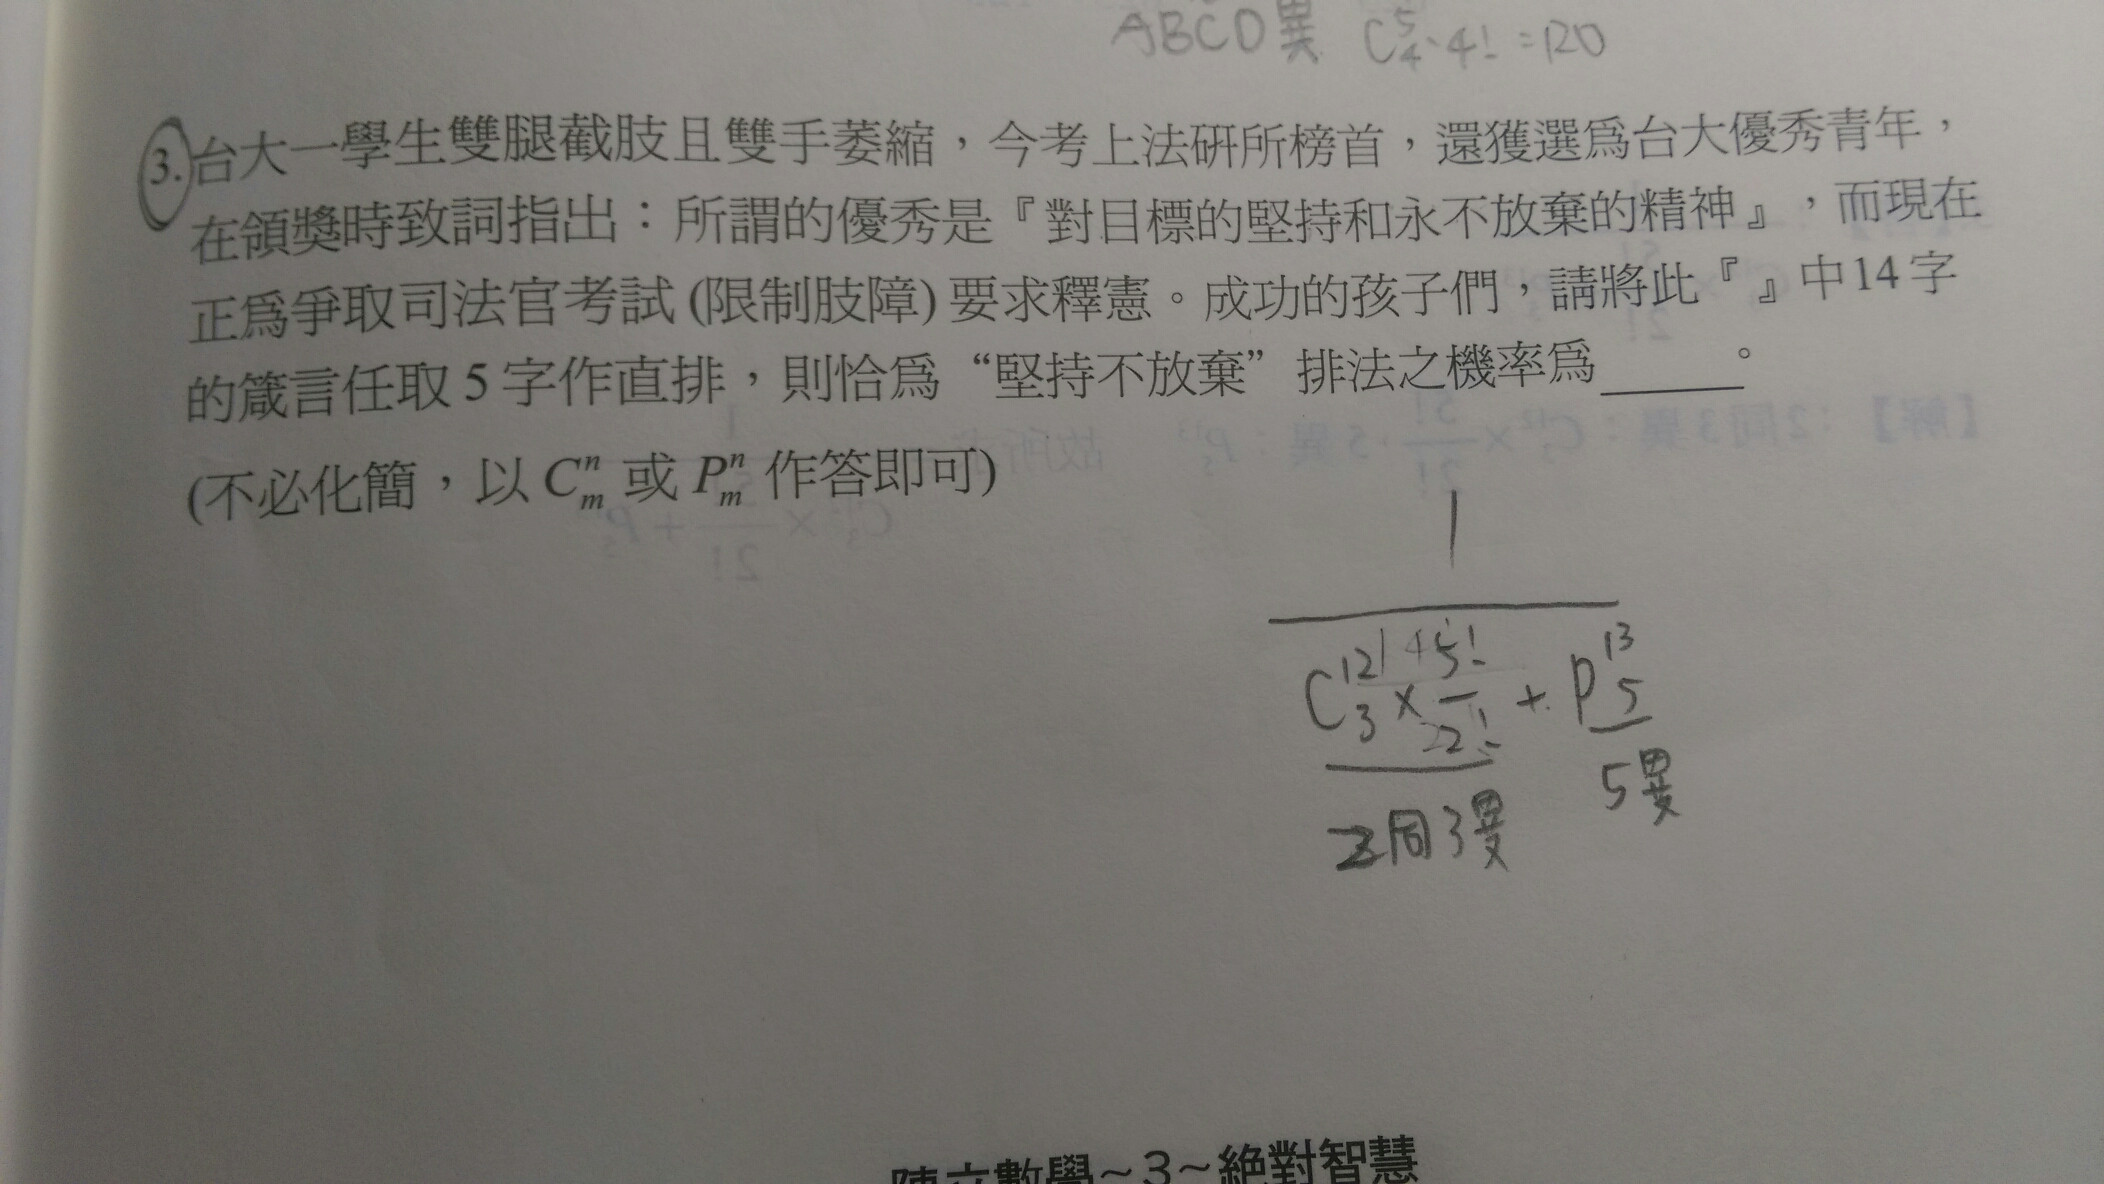 ABCD異 C⁵₄·4! =120
3.台大一學生雙腿截肢且雙手萎縮，今考上法研所榜首，還獲選爲台大優秀青年，
在領獎時致詞指出：所謂的優秀是『對目標的堅持和永不放棄的精神』，而現在
正爲爭取司法官考試(限制肢障)要求釋憲。成功的孩子們，請將此『』中14字
的箴言任取5字作直排，則恰爲“堅持不放棄”排法之機率爲____。
(不必化簡，以 Cⁿₘ 或 Pⁿₘ 作答即可)
1
C¹²₃ × 5!/2! + P¹³₅
2同3異 5異
陳立數學~3~絕對智慧